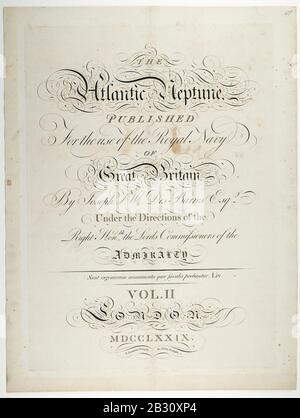 THE
Atlantic Neptune,
PUBLISHED
For the use of the Royal Navy
OF
Great Britain
By Joseph F. W. Des Barres Esqr.
Under the Directions of the
Right Honble. the Lords Commissioners of the
ADMIRALTY
Sunt ingeniorum monumenta quæ sæculis probantur. Liv.
VOL. II
LONDON.
MDCCLXXIX.
alamy
Image ID: 2B30XP4
www.alamy.com